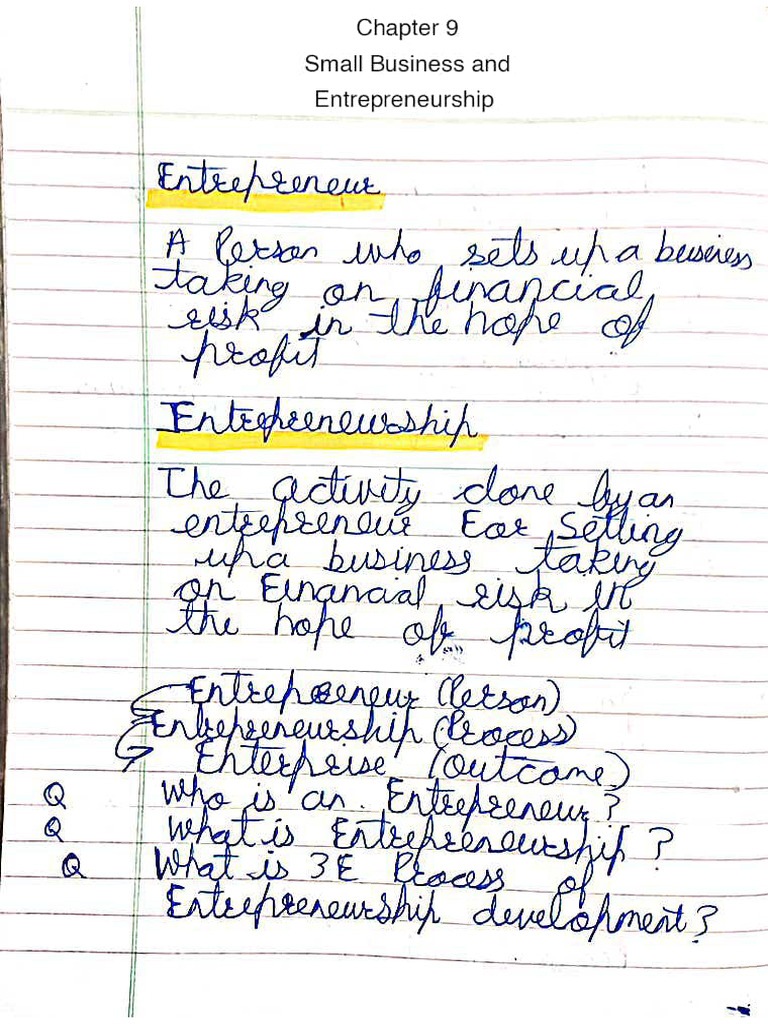 Chapter 9
Small Business and
Entrepreneurship
Entrepreneur
A Person who sets up a business
taking on financial
risk in the hope of
profit
Entrepreneurship
The activity done by an
entrepreneur For Setting
up a business taking
on Financial risk in
the hope of profit
Entrepreneur (Person)
Entrepreneurship (Process)
Enterprise (outcome)
Q Who is an Entrepreneur?
Q What is Entrepreneurship?
Q What is 3E Process of
Entrepreneurship development?